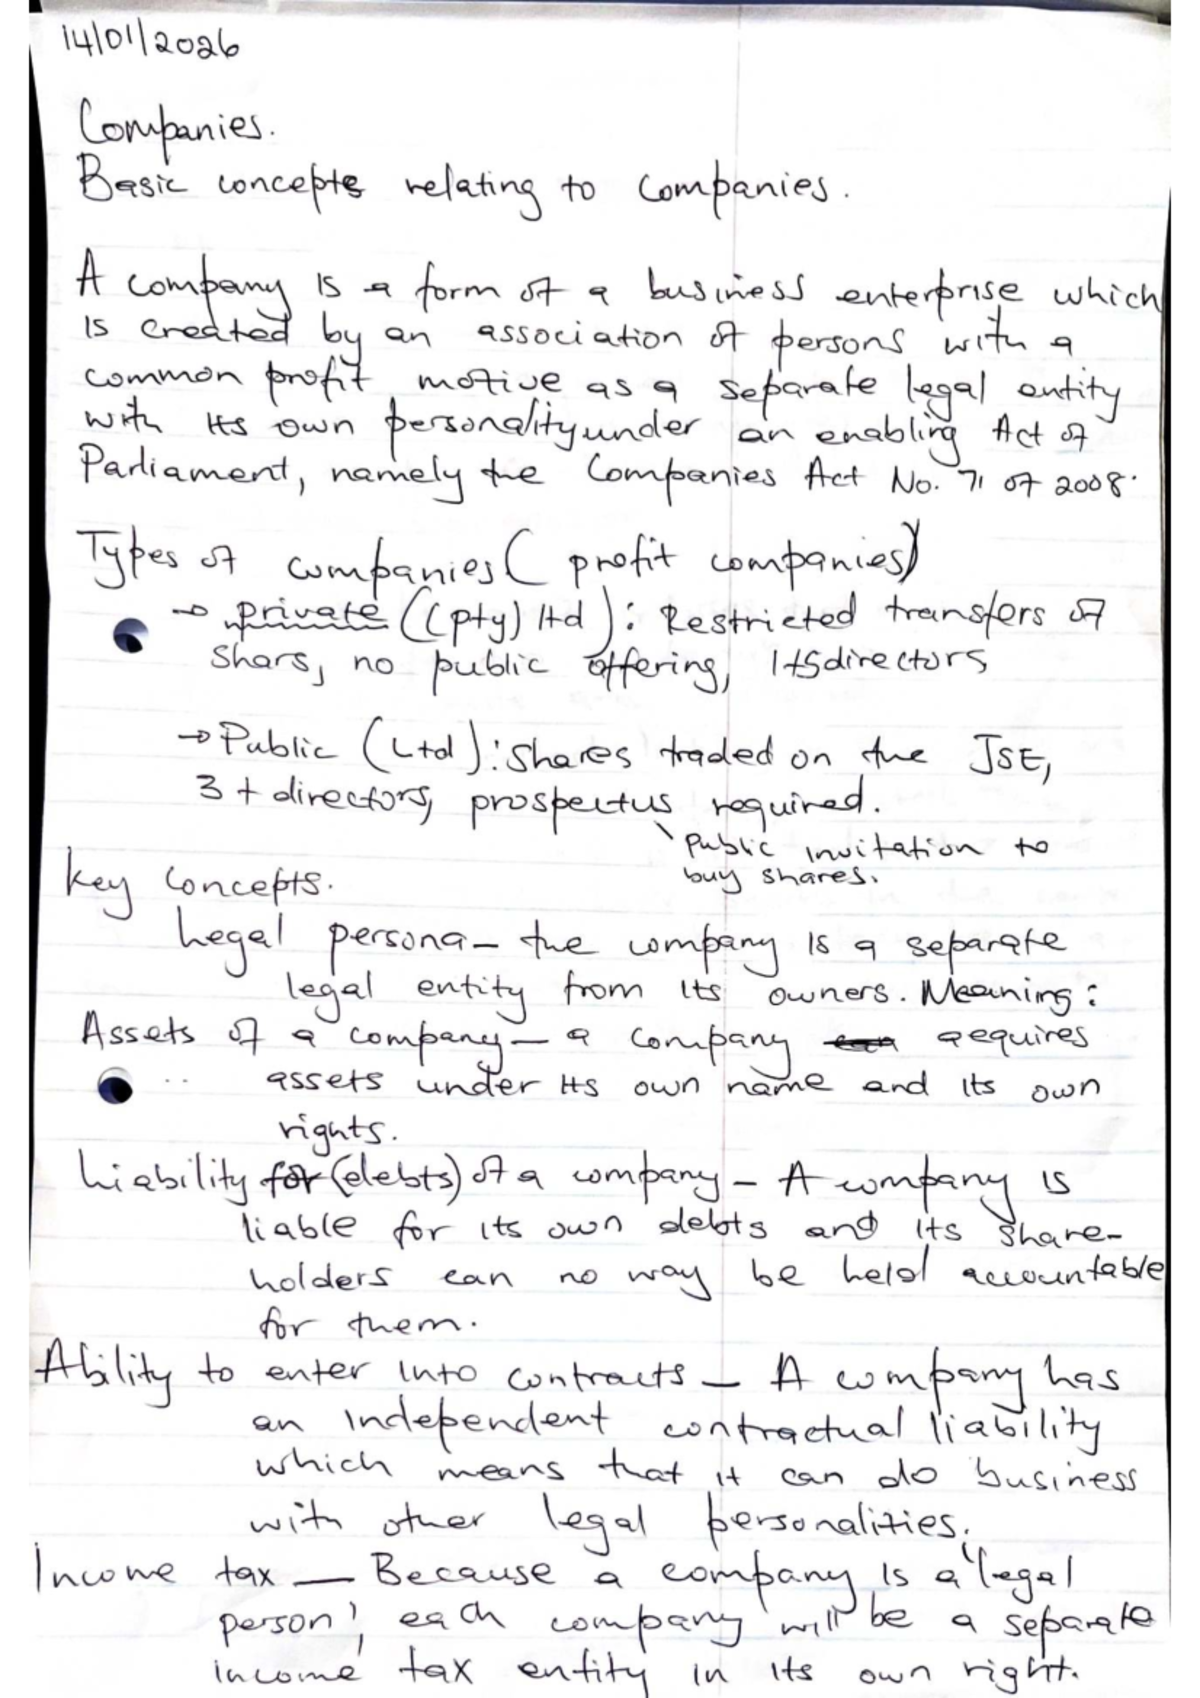 14/01/2026
Companies.
Basic concepts relating to companies.
A company is a form of a business enterprise which
is created by an association of persons with a
common profit motive as a separate legal entity
with its own personality under an enabling Act of
Parliament, namely the Companies Act No. 71 of 2008.
Types of companies (profit companies)
→ private ((pty) ltd): Restricted transfers of
shars, no public offering, 1+5directors
→ Public (Ltd): Shares traded on the JSE,
3+ directors, prospectus required.
Public invitation to
buy shares.
Key concepts.
Legal persona – the company is a separate
legal entity from its owners. Meaning:
Assets of a company – a company aequires
assets under its own name and its own
rights.
Liability for (debts) of a company – A company is
liable for its own debts and its share-
holders can no way be held accountable
for them.
Ability to enter into contracts – A company has
an independent contractual liability
which means that it can do business
with other legal personalities.
Income tax — Because a company is a 'legal
person', each company will be a separate
income tax entity in its own right.